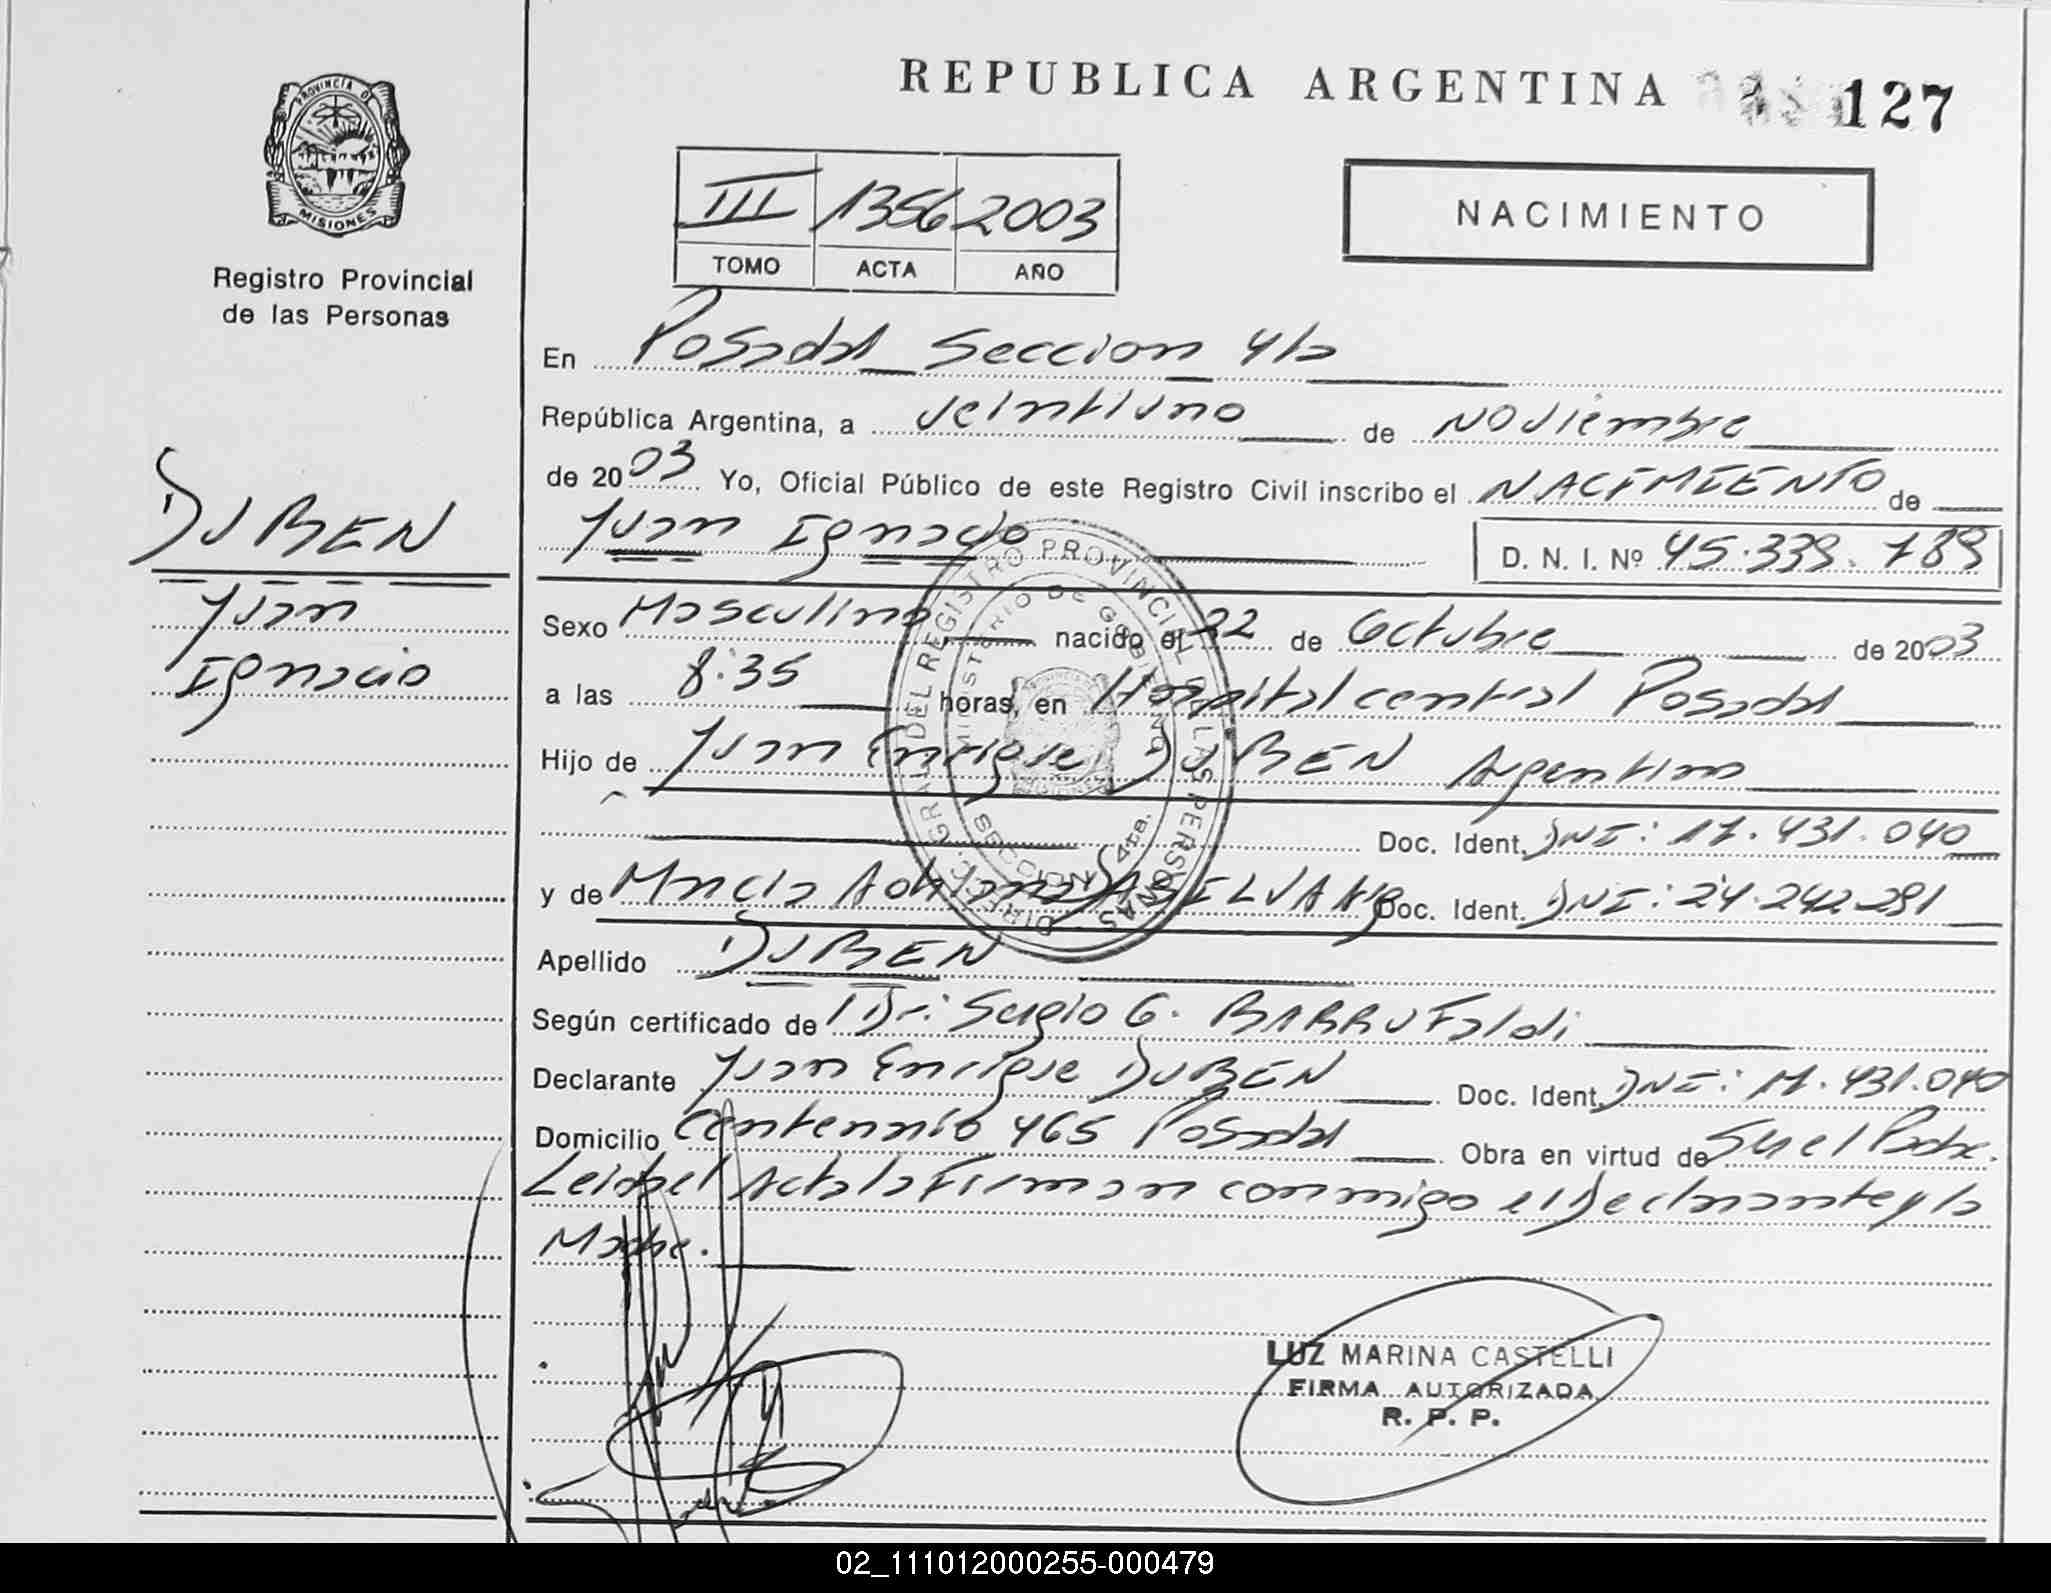 REPUBLICA ARGENTINA 127
PROVINCIA DE MISIONES
Registro Provincial
de las Personas
III 1356 2003
TOMO ACTA AÑO
NACIMIENTO
En Posadas Seccion 4ta
República Argentina, a veintiuno de Noviembre
de 2003 Yo, Oficial Público de este Registro Civil inscribo el NACIMIENTO de
Juan Ignacio D. N. I. Nº 45.339.789
DUBEN
Juan
Ignacio
Sexo Masculino nacido el 22 de Octubre de 2003
a las 8:35 horas, en Hospital central Posadas
Hijo de Juan Enrique DUBEN Argentino
Doc. Ident. DNI: 17.431.040
y de Adriana DA SILVA Doc. Ident. DNI: 24.242.281
DIRECC. GRAL. DEL REGISTRO PROVINCIAL DE LAS PERSONAS
MINISTERIO DE GOBIERNO
SECCION 4ta.
Apellido DUBEN
Según certificado de Dr: Sergio G. BARRUFaldi
Declarante Juan Enrique DUBEN Doc. Ident. DNI: 17.431.040
Domicilio Centenario 465 Posadas Obra en virtud de Ser el Padre.
Leida el Acta la Firman conmigo el Declarante y la
Madre.
LUZ MARINA CASTELLI
FIRMA AUTORIZADA
R. P. P.
02_111012000255-000479